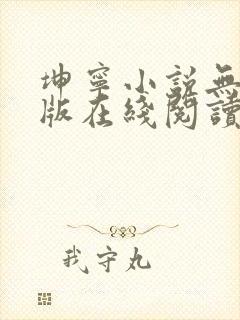 坤寧小説無
版在綫閱讀
我守丸